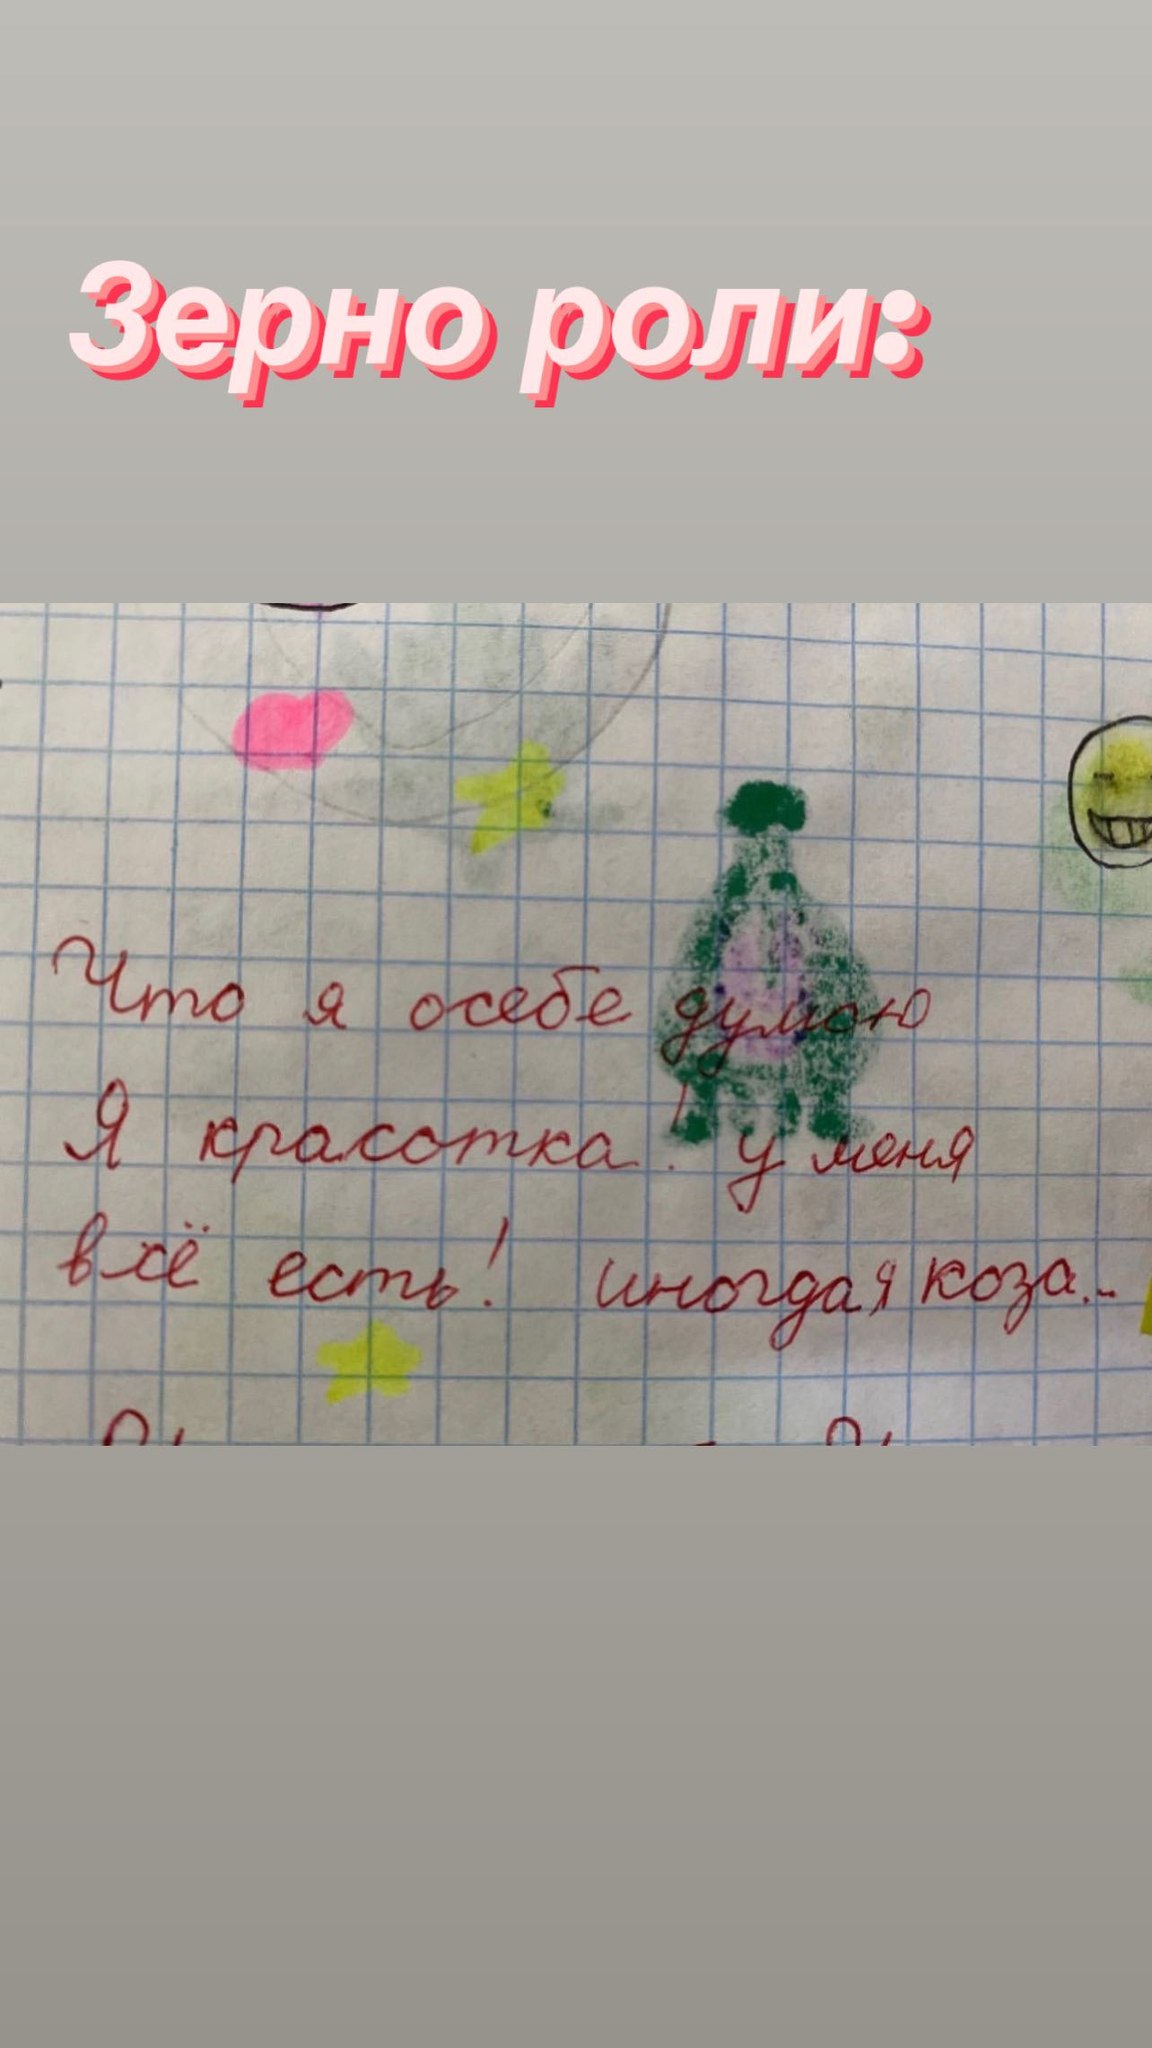 Зерно роли:
Что я осебе думаю
Я красотка! у меня
всё есть! иногда я коза...